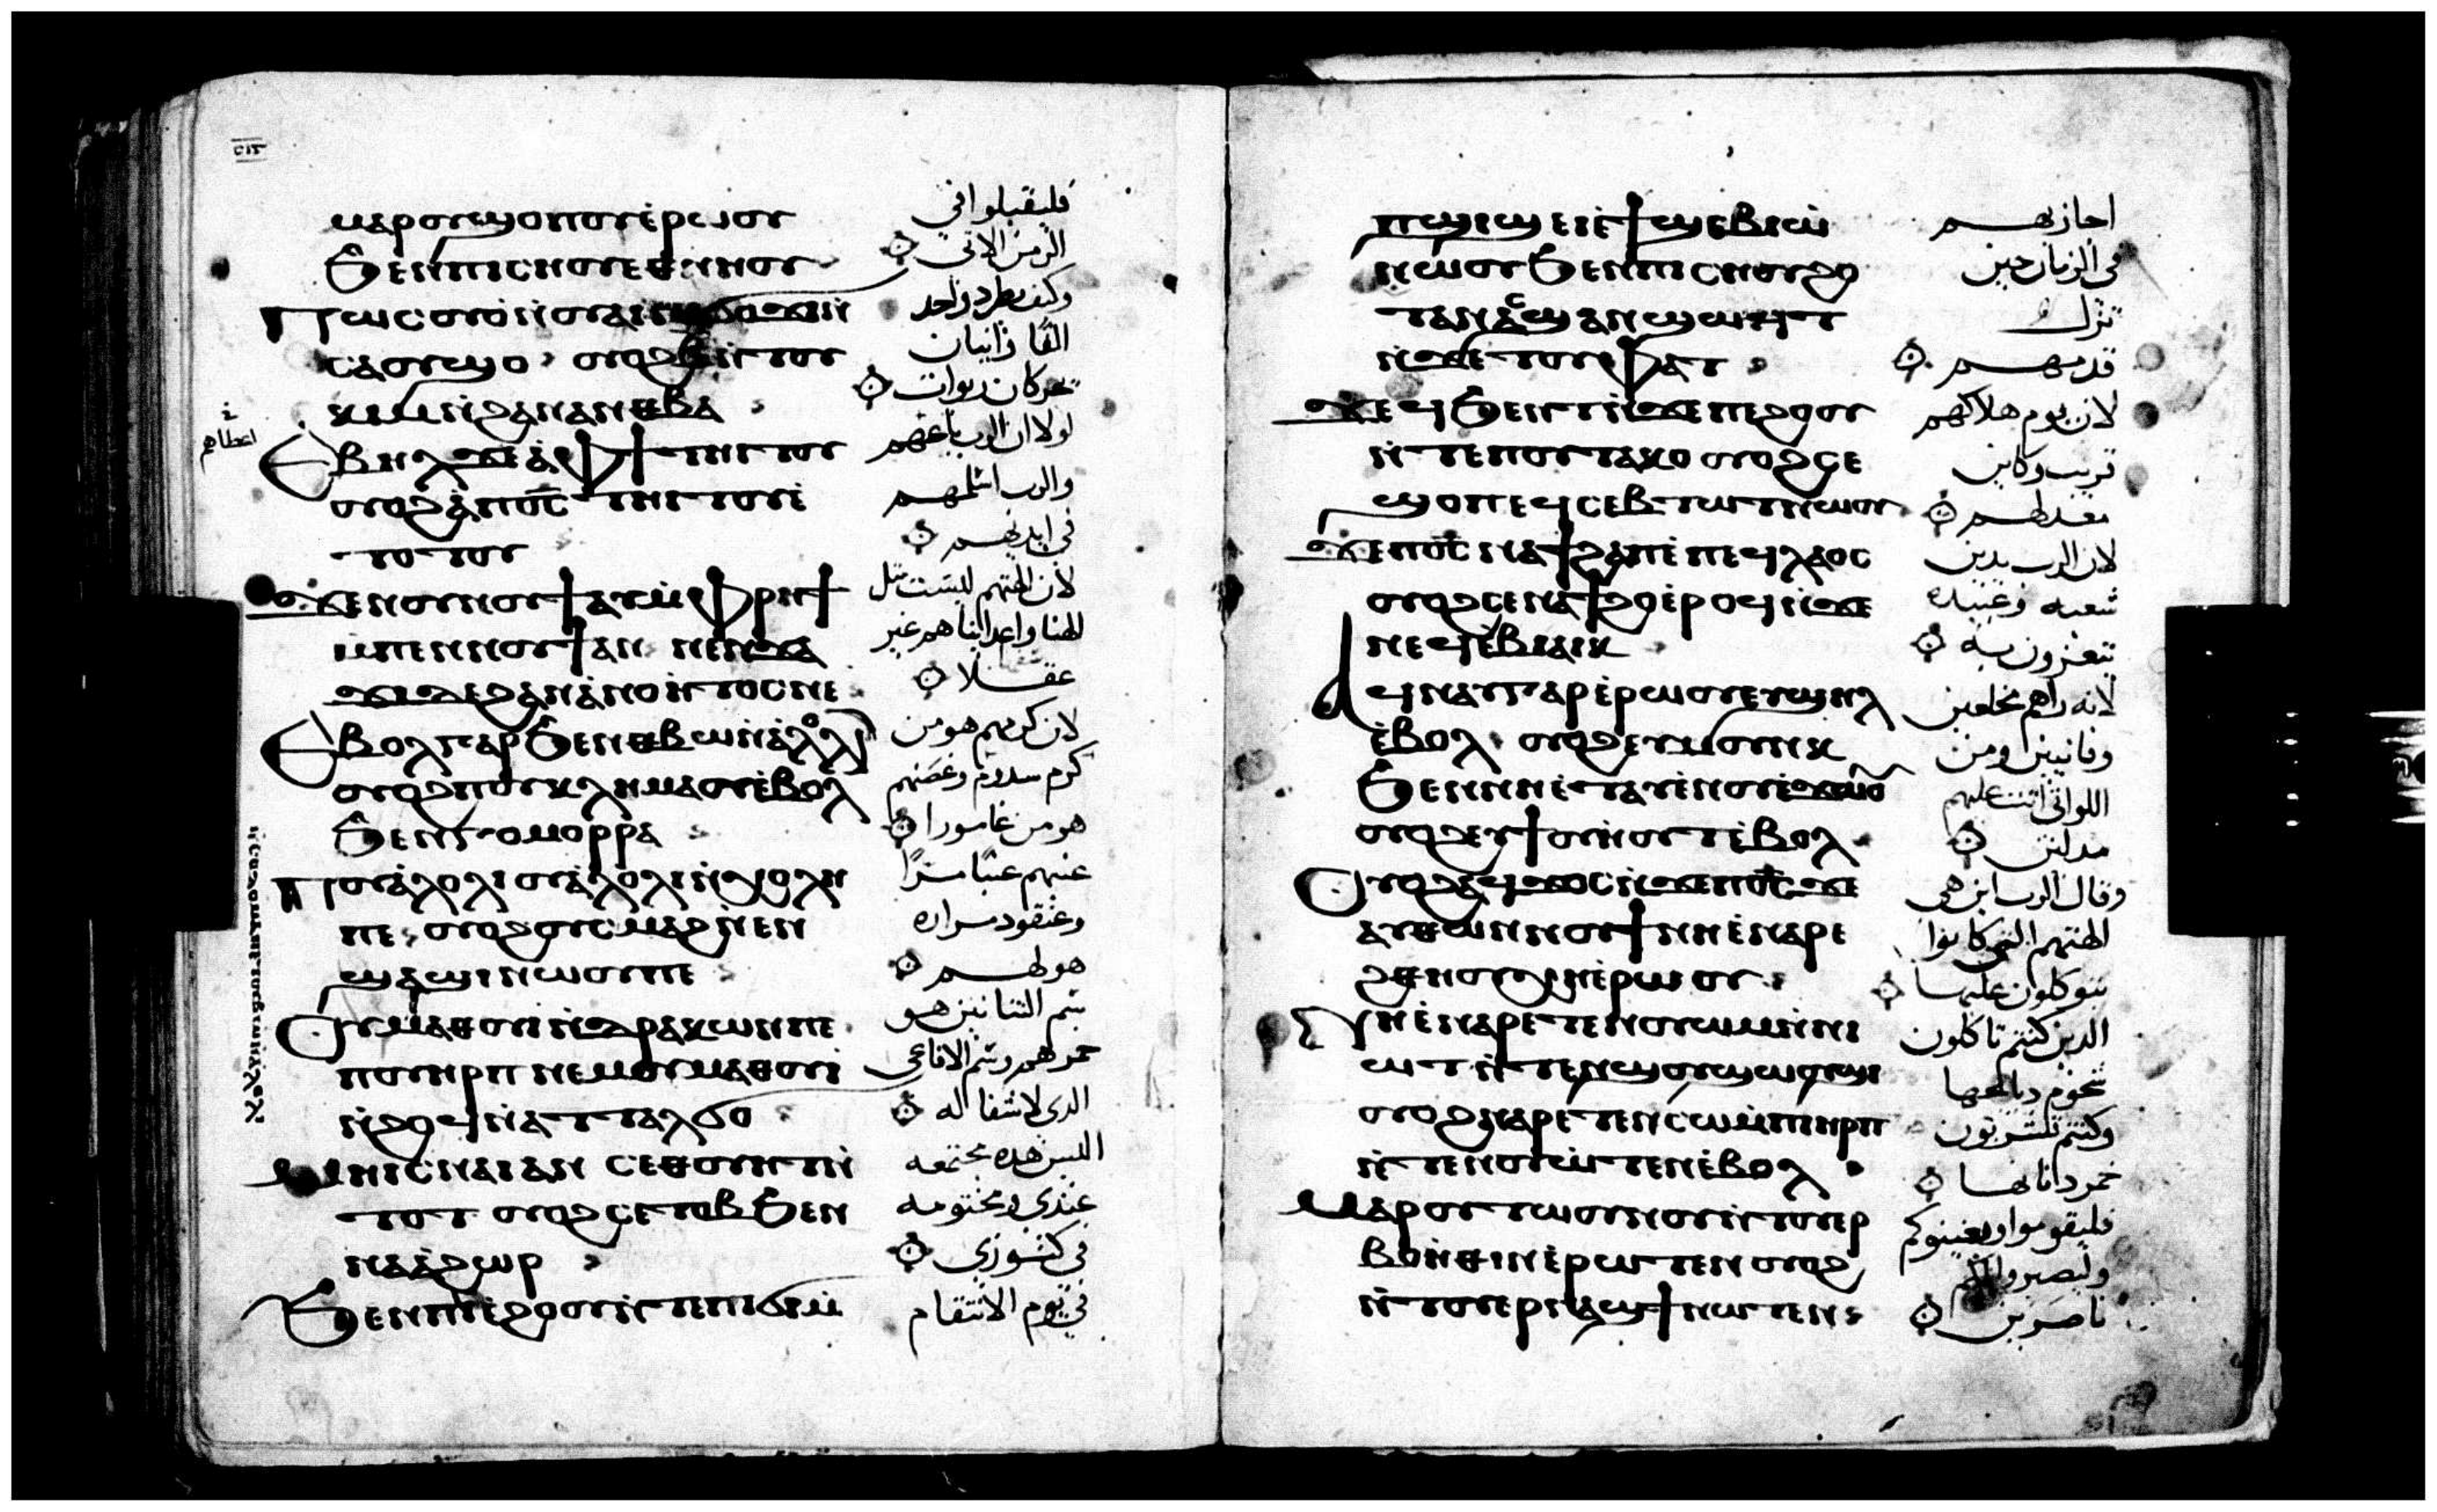 ⲙⲁⲣⲟⲩϣⲟⲡⲟⲩ ⲉ̀ⲣⲱⲟⲩ
ϧⲉⲛⲡⲓⲥⲏⲟⲩ ⲉⲑⲛⲏⲟⲩ
ⲡⲱⲥ ⲟⲩⲟ̀ⲛ ⲟⲩⲁⲓ ⲛⲁϭⲟϫⲓ ⲛ̀
ⲥⲁ ⲟⲩϣⲟ ⲟⲩⲟϩ ⲃ̅ ⲛ̀ⲧⲟⲩ
ⲕⲓⲙ ⲛ̀ϩⲁⲛⲁⲛⲑⲃⲁ
ⲉⲃⲏⲗ ϫⲉ ⲁ̀ⲫϯ ⲧⲏⲓⲧⲟⲩ
ⲟⲩⲟϩ ⲁ̀ⲡⲟ̅ⲥ̅ ⲧⲏⲓⲧⲟⲩ ⲉ̀
ⲧⲟⲧⲟⲩ
ϫⲉ ⲛⲟⲩⲛⲟⲩϯ ⲁⲩⲙ̀ⲫⲣⲏϯ
ⲙ̀ⲡⲉⲛⲛⲟⲩϯ ⲁⲛ ⲛⲉⲛϫⲁ
ϫⲓ ϫⲉ ϩⲁⲛⲁ̀ⲛⲟⲏⲧⲟⲥ ⲛⲉ
ⲉⲃⲟⲗ ⲅⲁⲣ ϧⲉⲛ ⲑⲃⲱ ⲛ̀ⲁ̀ⲗⲟⲗⲓ
ⲟⲩⲟϩ ⲡⲟⲩⲕⲗⲏⲙⲁ ⲟⲩⲉ̀ⲃⲟⲗ
ϧⲉⲛ ⲅⲟⲙⲟⲣⲣⲁ
ⲡⲟⲩⲁ̀ⲗⲟⲗⲓ ⲟⲩⲁ̀ⲗⲟⲗⲓ ⲛ̀ⲭⲟⲗⲏ
ⲡⲉ ⲟⲩⲟϩ ⲟⲩⲥⲙⲁϩ ⲛ̀ⲉⲛ
ϣⲁϣⲓ ⲛⲱⲟⲩ ⲡⲉ
ⲟⲩⲙⲁⲑⲟⲩⲓ ⲛ̀ⲇⲣⲁⲕⲱⲛ ⲡⲉ
ⲡⲟⲩⲏⲣⲡ ⲛⲉⲙ ⲟⲩⲙⲁⲑⲟⲩⲓ
ⲛ̀ϩⲟϥ ⲛ̀ⲁⲧⲧⲁⲗϭⲟ
ⲙⲏ ⲓⲥ ⲛⲁⲓ ⲁⲛ ⲥⲉⲑⲟⲩⲏⲧ ⲛ̀
ⲧⲟⲧ ⲟⲩⲟϩ ⲥⲉⲧⲟⲃ ϧⲉⲛ
ⲛⲁⲁ̀ϩⲱⲣ
ϧⲉⲛ ⲡⲓⲉ̀ϩⲟⲟⲩ ⲛ̀ⲧⲉ ⲡⲓϭⲓⲙ̀
فليقبلوا في
الزمن الاتي
وكيف يطرد واحد
الفا واثنان
يحركان ربوات
لولا ان الرب باعهم
والرب اسلمهم
في ايديهم
لان الهتهم ليست مثل
الهنا واعداينا هم غير
عقلا
لان كرمهم هو من
كرم سدوم وغصنهم
هو من غامورا
عنبهم عنبا مرا
وعنقود مراره
هو لهم
سم الثنانين هو
خمرهم وسم الافاعى
الدى لا شفا له
اليس هده مجتمعه
عندى ومختومه
فى كنوزى
في يوم الانتقام
اعطاهم
ⲡϣⲓϣ ⲉⲓⲉ̀ϯϣⲉⲃⲓⲱ̀
ⲛⲱⲟⲩ ϧⲉⲛ ⲡⲓⲥⲏⲟⲩ ϩⲟ
ⲧⲁⲛ ⲁⲥϣⲁⲛϣⲱϯⲧ
ⲛ̀ϫⲉ ⲧⲟⲩⲫⲁⲧ
ϫⲉ ϥϧⲉⲛⲧ ⲛ̀ϫⲉ ⲡⲉϩⲟⲟⲩ
ⲛ̀ⲧⲉ ⲡⲟⲩⲧⲁⲕⲟ ⲟⲩⲟϩ ϥⲉ
ϣⲟⲡ ⲉϥⲥⲉⲃⲧⲱⲧ ⲛⲱⲟⲩ
ϫⲉ ⲡⲟ̅ⲥ̅ ⲛⲁϯϩⲁⲡ ⲉ̀ⲡⲉϥⲗⲁⲟⲥ
ⲟⲩⲟϩ ⲥⲉⲛⲁϯϩⲟ ⲉ̀ⲣⲟϥ ⲛ̀ϫⲉ
ⲛⲉϥⲉ̀ⲃⲓⲁⲓⲕ
ⲁϥⲛⲁⲩ ⲅⲁⲣ ⲉ̀ⲣⲱⲟⲩ ⲉⲩϣⲏⲗ
ⲉ̀ⲃⲟⲗ ⲟⲩⲟϩ ⲉⲩⲙⲟⲩⲛⲕ
ϧⲉⲛ ⲛⲏⲉ̀ⲧⲁⲩⲉ̀ⲛⲟⲩ ⲉ̀ϫⲱⲟⲩ
ⲟⲩⲟϩ ⲉⲩϯⲟⲩⲛ̀ⲟⲩⲧ ⲉ̀ⲃⲟⲗ
ⲟⲩⲟϩ ⲁϥϫⲟⲥ ⲛ̀ϫⲉ ⲡⲟ̅ⲥ̅ ϫⲉ
ⲁⲩⲑⲱⲛ ⲛⲟⲩⲛⲟⲩϯ ⲛⲏⲉ̀ⲛⲁⲣⲉ
ϩⲑⲏⲟⲩ ⲭⲏ ⲉ̀ⲣⲱⲟⲩ
ⲛⲏⲉ̀ⲛⲁⲣⲉⲧⲉⲛⲟⲩⲱⲙ ⲛ̀ⲛⲓ
ⲱⲧ ⲛ̀ⲧⲉ ⲛⲟⲩϣⲟⲩϣⲱⲟⲩϣⲓ
ⲟⲩⲟϩ ⲛⲁⲣⲉⲧⲉⲛⲥⲱ ⲙ̀ⲡⲏⲣⲡ
ⲛ̀ⲧⲉ ⲛⲟⲩⲱ̀ⲧⲉⲛ ⲉ̀ⲃⲟⲗ
ⲙⲁⲣⲟⲩⲧⲱⲟⲩⲛⲟⲩ ⲛ̀ⲧⲟⲩⲉⲣ
ⲃⲟⲏ̀ⲑⲓⲛ ⲉ̀ⲣⲱⲧⲉⲛ ⲟⲩⲟϩ
ⲛ̀ⲧⲟⲩⲉⲣⲛⲁϣϯ ⲛⲱⲧⲉⲛ
اجازيهم
فى الزمان حين
تزل
قدمهم
لان يوم هلاكهم
قريب وكاين
معد لهم
لان الرب يدين
شعبه وعبيده
يتعزون به
لانه راهم مخلعين
وفانيين ومن
اللواتى اتت عليهم
مدلين
وقال الرب اين هى
الهتهم التى كانوا
يتوكلون عليها
الدين كنتم تاكلون
شحوم دبايحها
وكنتم تشربون
خمر داناتها
فليقوموا ويعينوكم
وليصيروا لكم
ناصرين